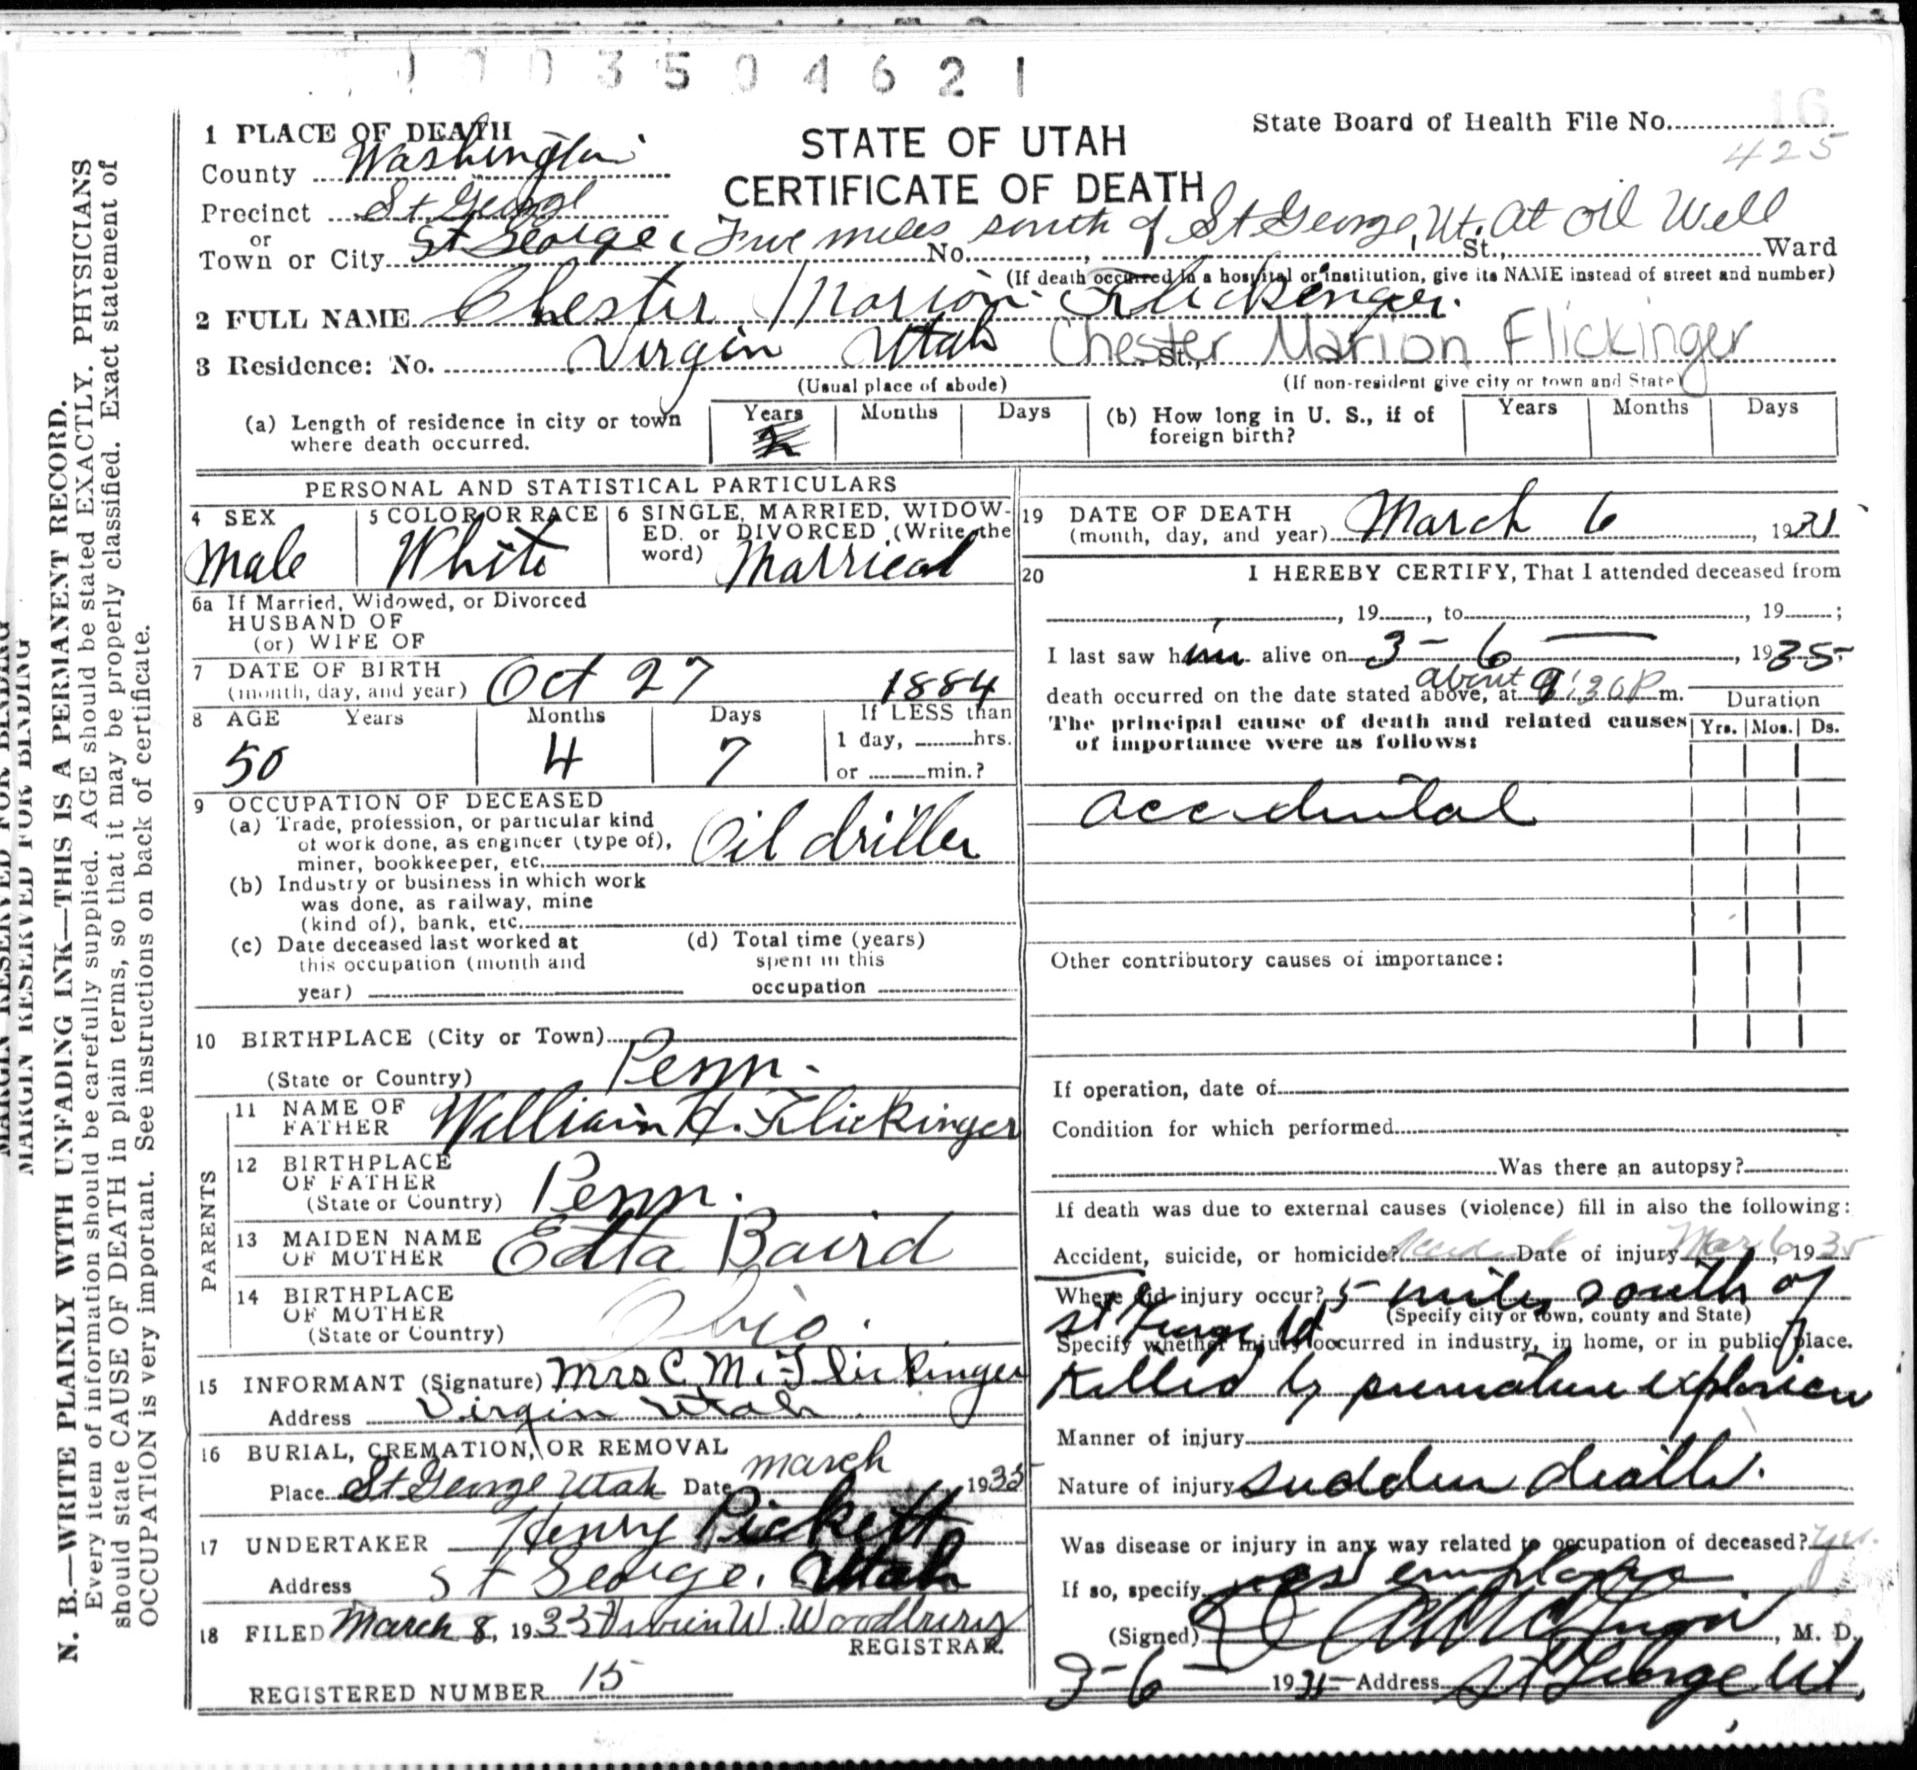 003504621
16
1 PLACE OF DEATH
STATE OF UTAH
CERTIFICATE OF DEATH
State Board of Health File No.
425
County Washington
Precinct St George
or
Town or City St George (Five miles south of St George, Ut. at oil Well
No. St., Ward
(If death occurred in a hospital or institution, give its NAME instead of street and number)
2 FULL NAME Chester Marion Flickinger.
3 Residence: No. Virgin Utah St., Chester Marion Flickinger
(Usual place of abode) (If non-resident give city or town and State)
(a) Length of residence in city or town where death occurred. Years Months Days
(b) How long in U. S., if of foreign birth? Years Months Days
PERSONAL AND STATISTICAL PARTICULARS
4 SEX Male
5 COLOR OR RACE White
6 SINGLE, MARRIED, WIDOWED. or DIVORCED (Write the word) Married
6a If Married, Widowed, or Divorced
HUSBAND OF
(or) WIFE OF
7 DATE OF BIRTH
(month, day, and year) Oct 27 1884
8 AGE Years Months Days If LESS than
50 4 7 1 day, hrs.
or min.?
9 OCCUPATION OF DECEASED
(a) Trade, profession, or particular kind
of work done, as engineer (type of),
miner, bookkeeper, etc. Oil driller
(b) Industry or business in which work
was done, as railway, mine
(kind of), bank, etc.
(c) Date deceased last worked at
this occupation (month and
year)
(d) Total time (years)
spent in this
occupation
10 BIRTHPLACE (City or Town)
(State or Country) Penn.
PARENTS
11 NAME OF
FATHER William H. Flickinger
12 BIRTHPLACE
OF FATHER
(State or Country) Penn.
13 MAIDEN NAME
OF MOTHER Edta Baird
14 BIRTHPLACE
OF MOTHER
(State or Country) Ohio.
15 INFORMANT (Signature) Mrs C. M. Flickinger
Address Virgin Utah
16 BURIAL, CREMATION, OR REMOVAL
Place St George Utah Date march 1935
17 UNDERTAKER Henry Pickett
Address St George. Utah
18 FILED March 8, 1935 Woodbury
REGISTRAR.
REGISTERED NUMBER 15
19 DATE OF DEATH
(month, day, and year) March 6, 1935
20 I HEREBY CERTIFY, That I attended deceased from
, 19 , to , 19 ;
I last saw him alive on 3-6, 1935
death occurred on the date stated above, at about 9:30 P m.
Duration
The principal cause of death and related causes
of importance were as follows:
Yrs. Mos. Ds.
accidental
Other contributory causes of importance:
If operation, date of
Condition for which performed
Was there an autopsy?
If death was due to external causes (violence) fill in also the following:
Accident, suicide, or homicide? Accident Date of injury Mar 6, 1935
Where did injury occur? 5 miles south of
(Specify city or town, county and State)
St George Ut
Specify whether injury occurred in industry, in home, or in public place.
Killed by premature explosion
Manner of injury
Nature of injury sudden death.
Was disease or injury in any way related to occupation of deceased? Yes.
If so, specify
(Signed) , M. D.
3-6 1935 Address St George Ut.
MARGIN RESERVED FOR BINDING
MARGIN RESERVED FOR BINDING
N. B.—WRITE PLAINLY WITH UNFADING INK—THIS IS A PERMANENT RECORD.
Every item of information should be carefully supplied. AGE should be stated EXACTLY. PHYSICIANS
should state CAUSE OF DEATH in plain terms, so that it may be properly classified. Exact statement of
OCCUPATION is very important. See instructions on back of certificate.